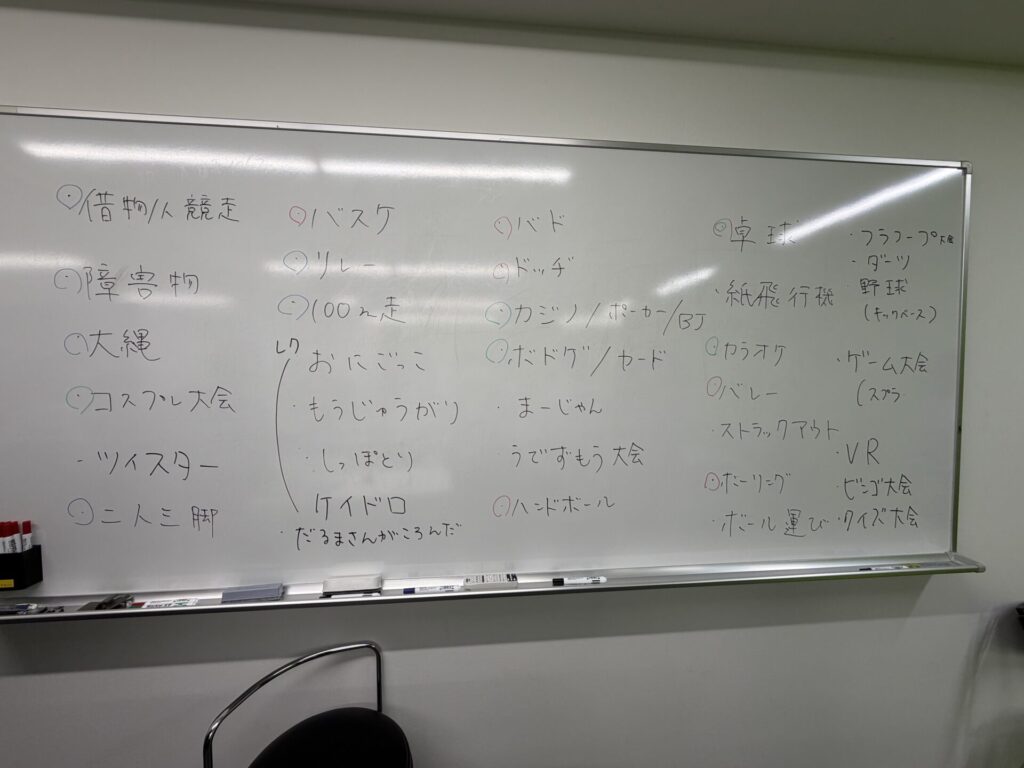 ・借物/人競走
・障害物
・大縄
・コスプレ大会
・ツイスター
・二人三脚
・バスケ
・リレー
・100m走
レク
おにごっこ
・もうじゅうがり
・しっぽとり
ケイドロ
・だるまさんがころんだ
・バド
・ドッヂ
・カジノ/ポーカー/BJ
・ボドゲ/カード
・まーじゃん
うでずもう大会
・ハンドボール
・卓球
・紙飛行機
・カラオケ
・バレー
・ストラックアウト
・ボーリング
・ボール運び
・フラフープ大会
・ダーツ
・野球
(キックベース)
・ゲーム大会
(スプラ
・VR
・ビンゴ大会
・クイズ大会